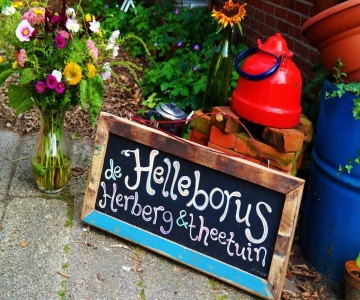 de Helleborus
Herberg & theetuin